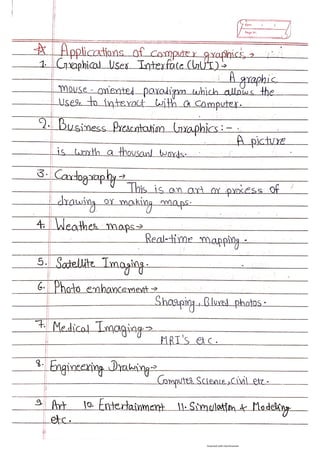 Date:
Page No.
Applications of computer graphics →
1. Graphical User Interface (GUI) →
A graphic
mouse-oriented paradigm which allows the
user to interact with a computer.
2. Business Presentation Graphics :- .
A picture
is worth a thousand words.
3. Cartography →
This is an art or process of
drawing or making maps.
4. Weather maps →
Real-time mapping.
5. Satellite Imaging.
6. Photo enhancement →
Sharping, Blured photos.
7. Medical Imaging →
MRI's etc.
8. Engineering Drawing →
Computer Science, Civil etc.
9. Art 10. Entertainment 11. Simulation & Modeling
etc.